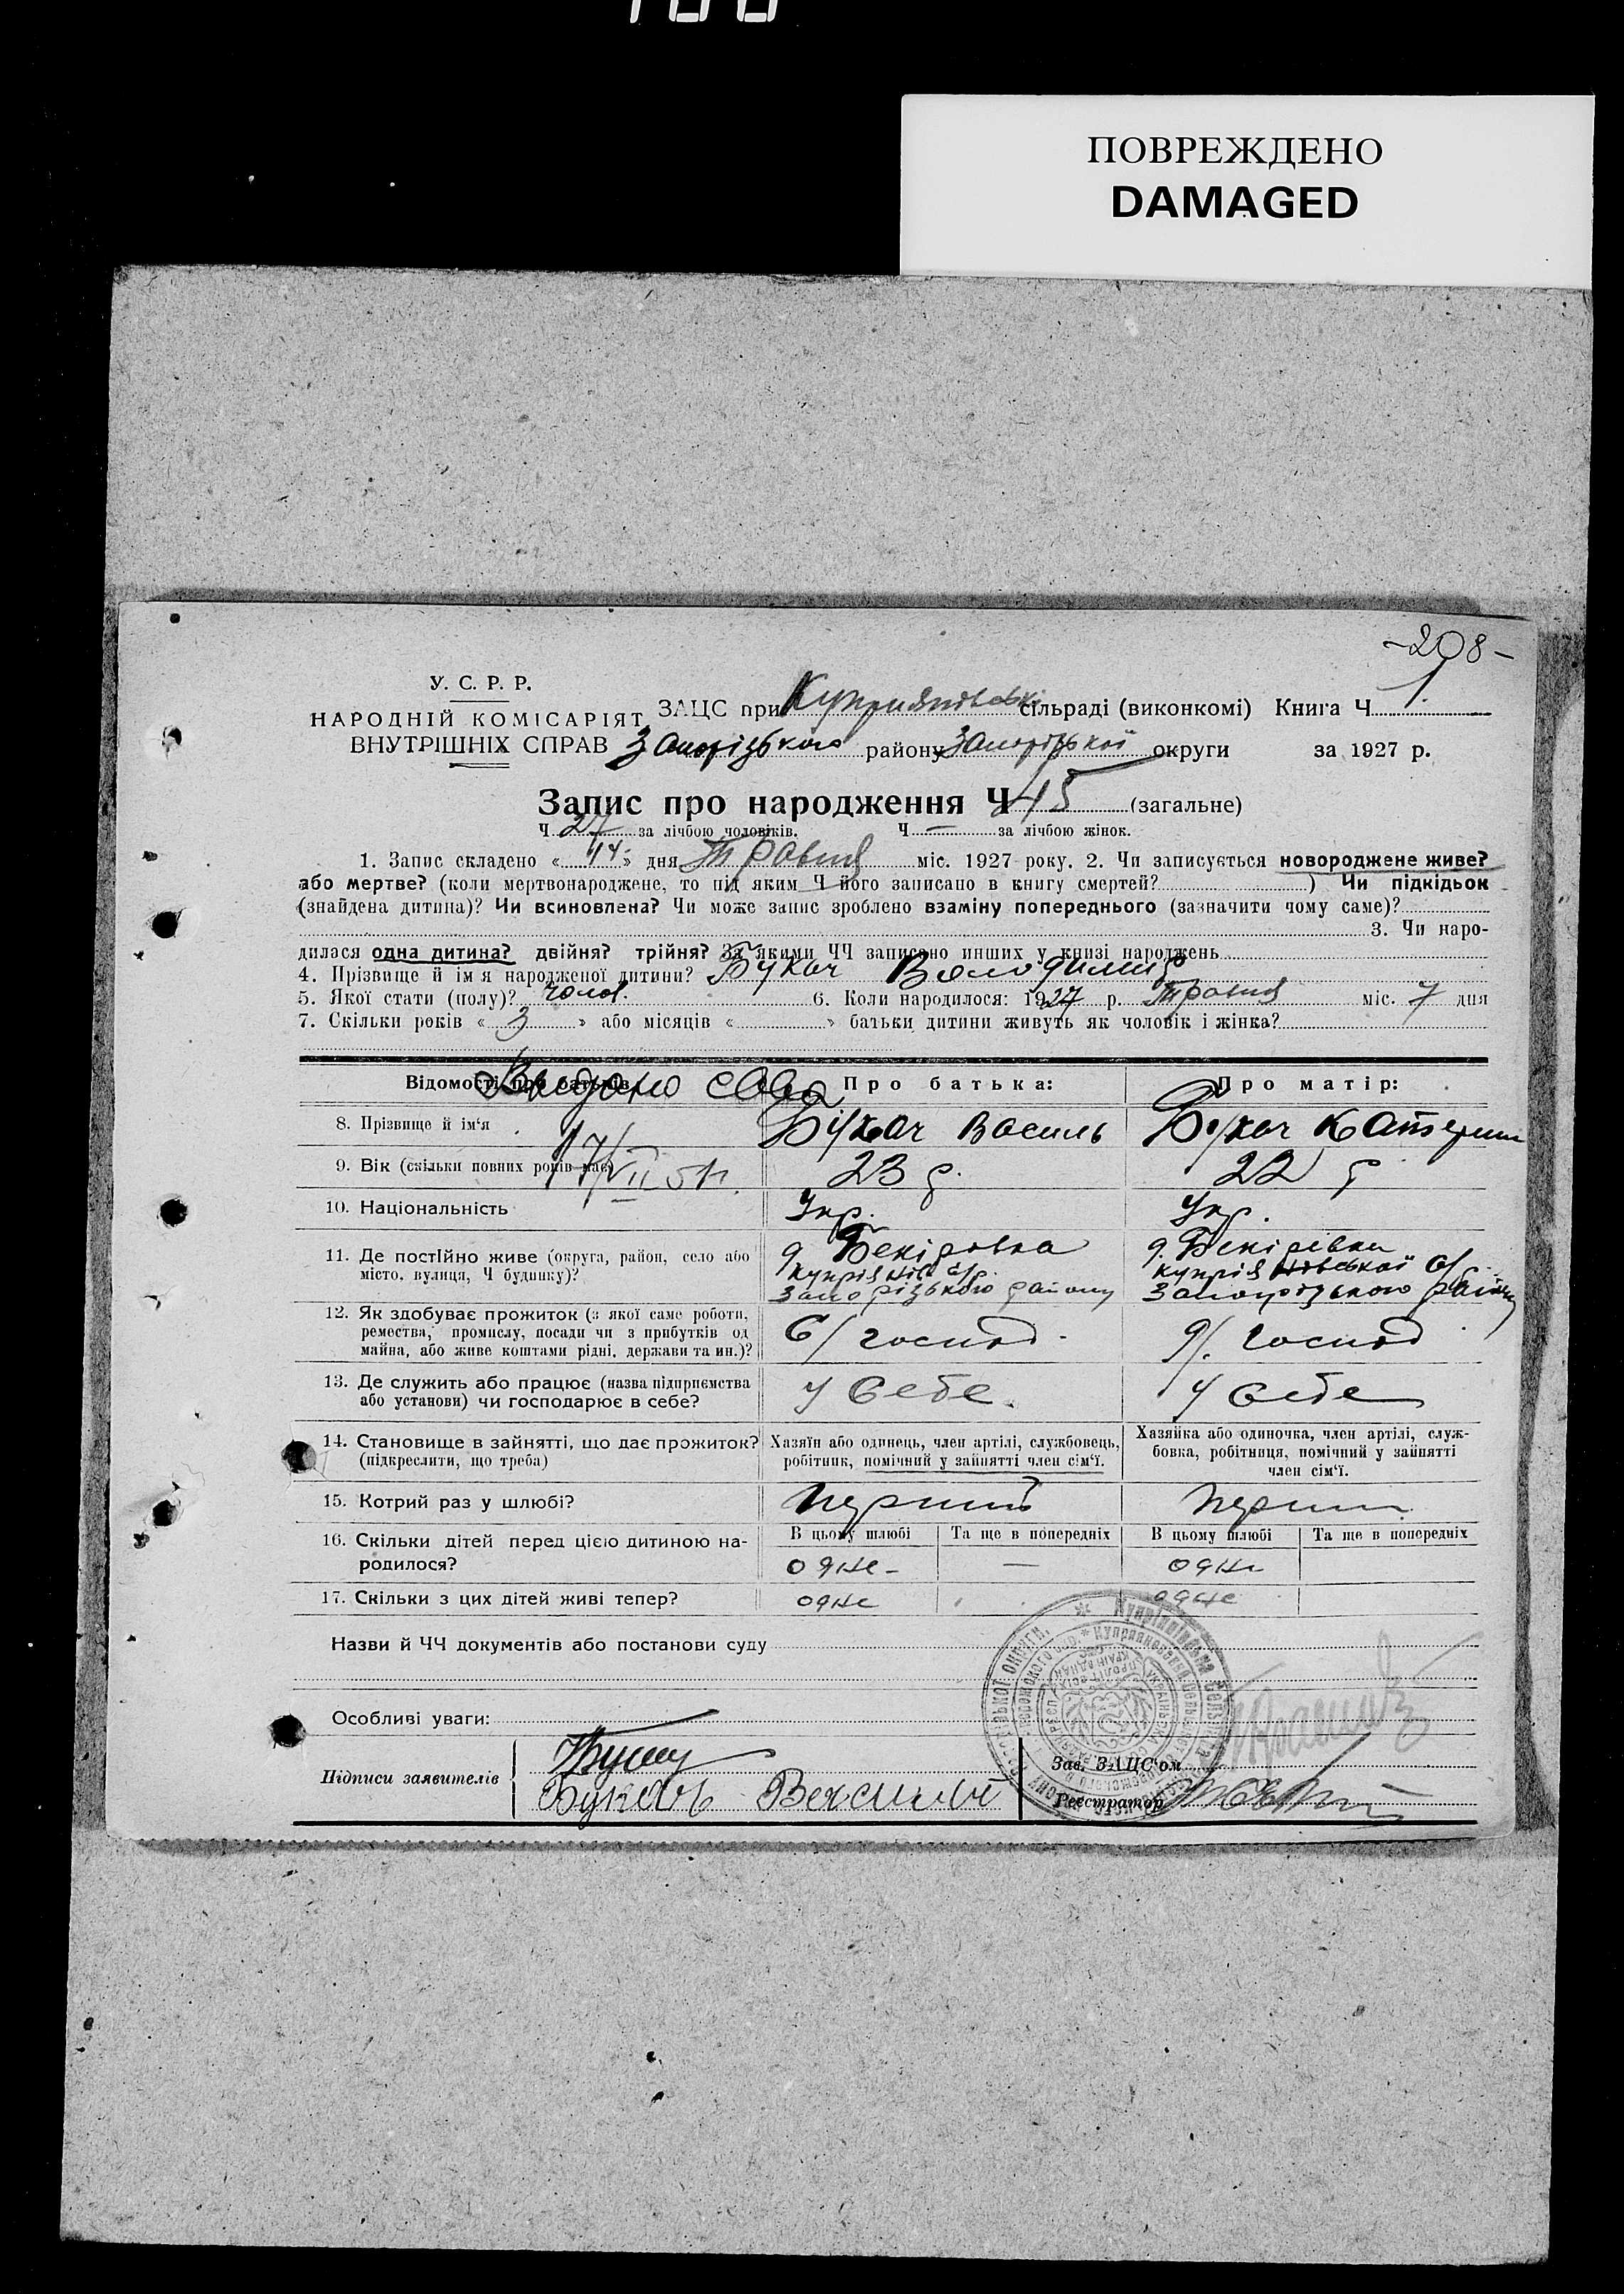 ПОВРЕЖДЕНО
DAMAGED
-208-
У. С. Р. Р.
НАРОДНІЙ КОМІСАРІЯТ
ВНУТРІШНІХ СПРАВ
ЗАЦС при Куприяновські сільраді (виконкомі) Книга Ч 1
Запорізького району Запорізької округи за 1927 р.
Запис про народження Ч 45 (загальне)
Ч 27 за лічбою чоловіків. Ч — за лічбою жінок.
1. Запис складено « 14 » дня Травня міс. 1927 року. 2. Чи записується новороджене живе?
або мертве? (коли мертвонароджене, то під яким Ч його записано в книгу смертей? ) Чи підкідьок
(знайдена дитина)? Чи всиновлена? Чи може запис зроблено взаміну попереднього (зазначити чому саме)?
3. Чи наро-
дилася одна дитина? двійня? трійня? За якими ЧЧ записано инших у книзі народжень
4. Прізвище й ім'я народженої дитини? Букач Володимир
5. Якої стати (полу)? чолов. 6. Коли народилося: 1927 р. Травня міс. 7 дня
7. Скільки років « 3 » або місяців « » батьки дитини живуть як чоловік і жінка?
Відомості про батьків Про батька: Про матір:
8. Прізвище й ім'я Букач Василь Букач Катерина
9. Вік (скільки повних років має) 23 р. 22 р
10. Національність Укр. Укр.
11. Де постійно живе (округа, район, село або
місто, вулиця, Ч будинку)?
д. Бекіровка
Запорізького району
д. Бекірівка
Купріянівської с/р.
Запорізького району
12. Як здобуває прожиток (з якої саме роботи,
ремества, промислу, посади чи з прибутків од
майна, або живе коштами рідні, держави та ин.)?
С/господ. господ
13. Де служить або працює (назва підприємства
або установи) чи господарює в себе?
У себе. У себе
14. Становище в зайнятті, що дає прожиток?
(підкреслити, що треба)
Хазяїн або одинець, член артілі, службовець,
робітник, помічний у зайнятті член сім'ї.
Хазяйка або одиночка, член артілі, служ-
бовка, робітниця, помічний у зайнятті
член сім'ї.
15. Котрий раз у шлюбі? перший перший
16. Скільки дітей перед цією дитиною на-
родилося?
В цьому шлюбі Та ще в попередніх В цьому шлюбі Та ще в попередніх
одне — одне
17. Скільки з цих дітей живі тепер? одне одне
Назви й ЧЧ документів або постанови суду
Особливі уваги:
Підписи заявителів
Зав. ЗАЦС'ом
Реєстратор